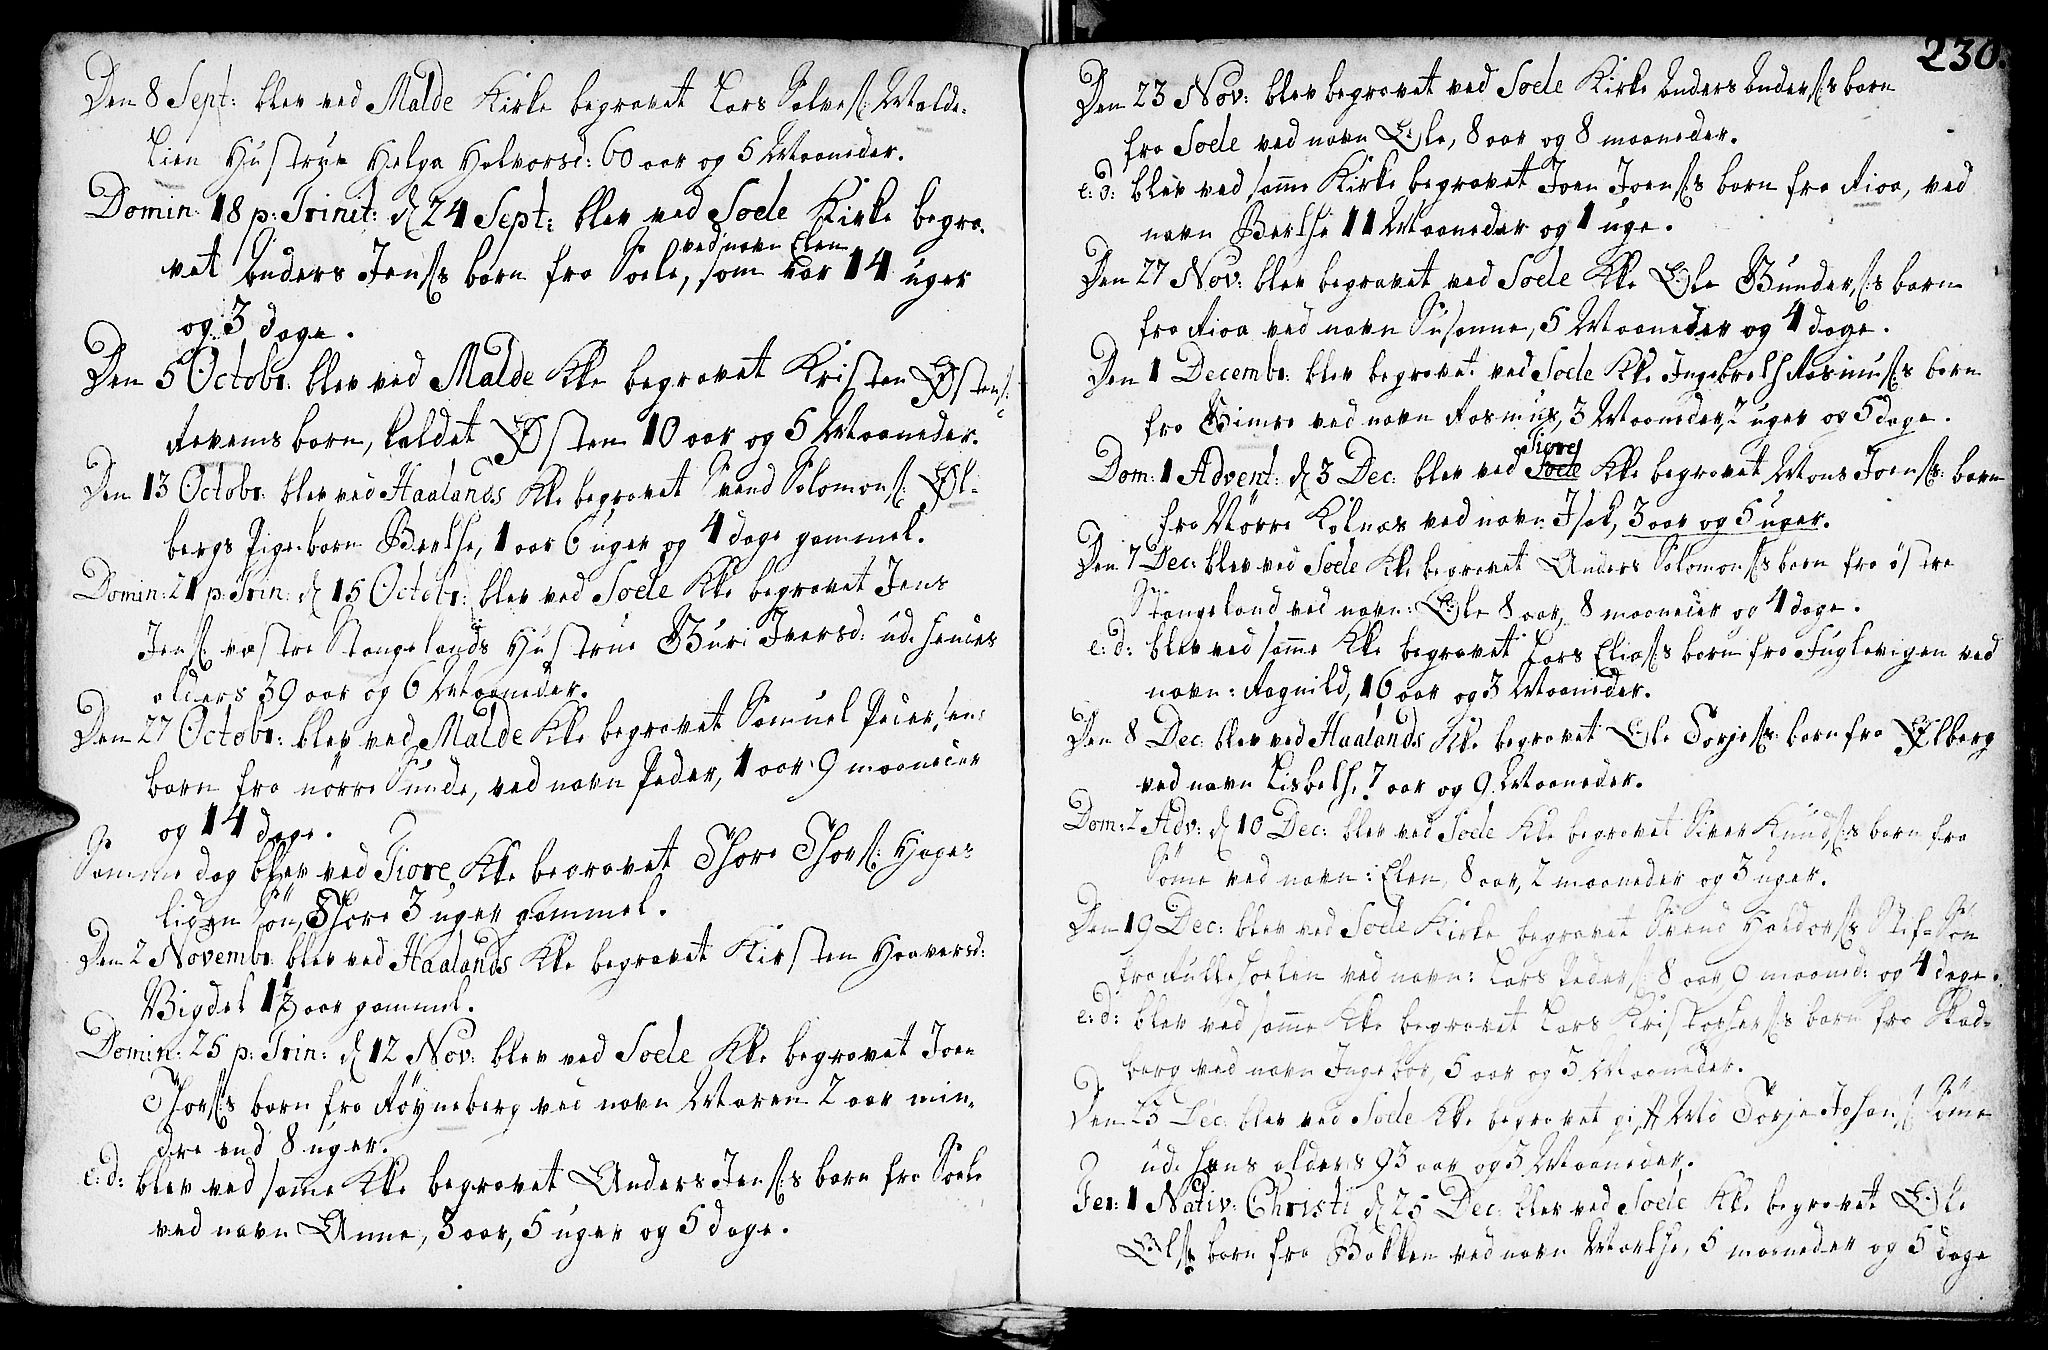 Den 8 Sept: blev ved Malde Kirke begravet Lars Salves: Malde-
Lien Hustrue Helga Halvorsd: 60 aar og 5 Maaneder.
Domin: 18 p: Trinit: d 24 Sept: blev ved Soele Kirke begra-
ved navn Elen
vet Anders Jens:s barn fra Soele, som var 14 uger
og 3 dage.
Den 5 Octobr: blev ved Malde Kke begravet Kristen Østens:
Revems barn, kaldet Østen 10 aar og 5 Maaneder.
Den 13 Octobr: blev ved Haalands Kke begravet Svend Salomons: Øl-
bergs Pige-barn Berthe, 1 aar 6 uger og 4 dage gammel.
Domin: 21 p: Trin: d 15 Octobr: blev ved Soele Kke begravet Jens
Jens: væstre Stangelands Hustrue Guri Iversd: udi hendes
alders 39 aar og 6 Maaneder.
Den 27 Octobr: blev ved Malde Kke begravet Samuel Pedersens
barn fra nørre Sunde, ved navn Peder, 1 aar 9 maaneder
og 14 dage.
Samme dag blev ved Tiore Kke begravet Thore Thors: Hage-
ligen Søn, Thore 3 uger gammel.
Den 2 Novembr: blev ved Haalands Kke begravet Kirsten Haaversd:
Bigdel 1½ aar gammel.
Domin: 25 p: Trin: d 12 Nov: blev ved Soele Kke begravet Joen
Thors:s barn fra Røyneberg ved navn Maren 2 aar min-
dre end 8 uger.
e: d: blev ved samme Kke begravet Anders Jens:s barn fra Soele
ved navn Anna, 3 aar, 5 uger og 5 dage.
230.
Den 23 Nov: blev begravet ved Soele Kirke Anders Anders:s barn
fra Soele ved navn Ole, 8 aar og 8 maaneder.
e: d: blev ved samme Kirke begravet Joen Joens:s barn fra Rioa, ved
navn Berthe 11 Maaneder og 1 uge.
Den 27 Nov: blev begravet ved Soele Kke Ole Gunders:s barn
fra Rioa ved navn Susanna, 5 Maaneder og 4 dage.
Den 1 Decembr: blev begravet ved Soele Kke Ingebreth Rasmus:s barn
fra Gimre ved navn Rasmus, 3 Maaneder, 2 uger og 5 dage.
Tiore
Dom: 1 Advent: d 3 Dec: blev ved Soele Kke begravet Mons Joens: barn
fra Nørre Kolnæs ved navn Isak, 3 aar og 5 uger.
Den 7 Dec: blev ved Soele Kke begravet Anders Salomons:s barn fra østre
Stangeland ved navn: Ole 8 aar, 8 maaneder og 4 dage.
e: d: blev ved samme Kke begravet Lars Elias:s barn fra Fuglevigen ved
navn: Ragnild, 16 aar og 3 Maaneder.
Den 8 Dec: blev ved Haalands Kke begravet Ole Torjes:s barn fra Ølberg
ved navn Lisbeth, 7 aar og 9 Maaneder.
Dom: 2 Adv: d 10 Dec: blev ved Soele Kke begravet Siver Knuds:s barn fra
Søme ved navn: Elen, 8 aar, 2 maaneder og 3 uger.
Den 19 Dec: blev ved Soele Kirke begravet Svend Haldors:s Stif-Søn
fra ved navn: Lars Peders: 8 aar 9 maaned: og 4 dage.
e: d: blev ved samme Kke begravet Lars Kristophers:s barn fra Skad-
berg ved navn Ingebor, 5 aar og 3 Maaneder.
Den 23 Dec: blev ved Soele Kke begravet gift Md Torje Johans: Søme
udi hans alders 93 aar og 3 Maaneder.
Fer: 1 Nativ: Christi d 25 Dec: blev ved Soele Kke begravet Ole
Ols: barn fra Bakken ved navn Marthe, 5 maaneder og 5 dage